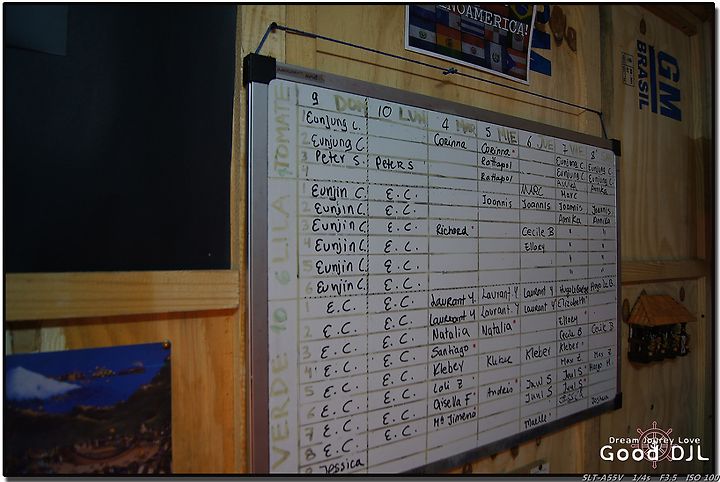 NOAMERICA!
GM
BRASIL
9 DOM 10 LUN 4 MAR 5 MIE 6 JUE 7 VIE 8
TOMATE
LILA 6
VERDE 10
1 Eunjung C. Corinna Corinna
2 Eunjung C Rattapol Eunjung C Eunjung C
3 Peter S. Peter S Rattapol Eunjung C Eunjung C
4 Marc Marc Annika
1 Eunjin C E.C. Joannis Joannis Joannis Joannis
2 Eunjin C. E.C. Annika Annika
3 Eunjin C E.C. Richard Cecile B " "
4 Eunjin C. E.C. Ellory " "
5 Eunjin C. E.C. " "
6 Eunjin C. E.C. " "
1 E.C. E.C. Laurant Y. Laurant Y Laurant Y
2 E.C. E.C. Laurant Y Laurant Y Laurant Y Elizabeth
3 E.C. E.C. Natalia Natalia Ellory
4 E.C. E.C. Santiago Cecile B Cecile B
5 E.C. E.C. Kleber Kleber Kleber Kleber
E.C. E.C. Loli Z Max Z Max Z
E.C. E.C. Gisella F Andres Juul S Juul S Hugo
E.C. E.C. Mª Jimena Juul S Juul S
8 E.C. Maelle Joshua
9 Jessica
Dream Jourey Love
Good DJL
SLT-A55V 1/4s F3.5 ISO 100